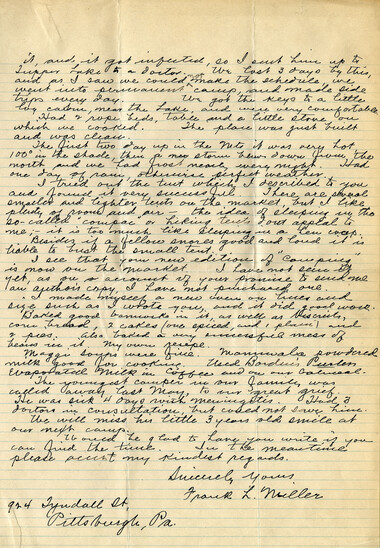 it, and it got infected, so I sent him up to
Tupper Lake to a doctor. We lost 3 days by this,
and as I saw we could not make the schedule, we
went into permanent camp, and made side
trips every day. We got the keys to a little
log cabin, near the Lake, and were very comfortable
Had 2 rope beds, table and a little stove on
which we cooked. The place was just built
and was clean.
The first two day up in the Mts it was very hot,
100° in the shade, then a new storm down from the
north and we had frost nearly every night. Had
one day of rain, otherwise perfect weather.
I tried out the tent which I described to you
and found it very successful. There are several
smaller and lighter tents on the market, but I like
plenty room and air - the idea of sleeping in the
so-called compac or hiking tent don't appeal to
me, - it is too much like sleeping in a tea cosy.
Besides if a fellow snores good and loud it is
liable to bust the small tent.
I see that your new edition of "Camping"
is now on the market. I have not seen it
yet, as on account of your promise to send me
an authors copy, I have not purchased one.
I made myself a new oven on lines and
size such as I wrote you, and it did good work.
Baked good bannocks in it, as well as biscuits,
corn bread, 2 cakes (one spiced, and 1 plain) and
2 pies. also baked a very successful mess of
beans in it. My own recipe.
Maggi soups were fine. Mammala powdered
milk good for cooking. Used Bordens
Evaporated Milk in Coffee and on our Oatmeal.
The youngest camper in our family, was
called away last Nov, to our great grief.
He was sick 4 days with meningitis. Had 3
doctors in consultation, but could not save him.
We will miss his little 3 years old smile at
our next camp.
Would be glad to have you write if you
can find the time. In the meantime
please accept my kindest regards.
Sincerely Yours
Frank L. Miller
924 Tyndall St,
Pittsburgh, Pa.